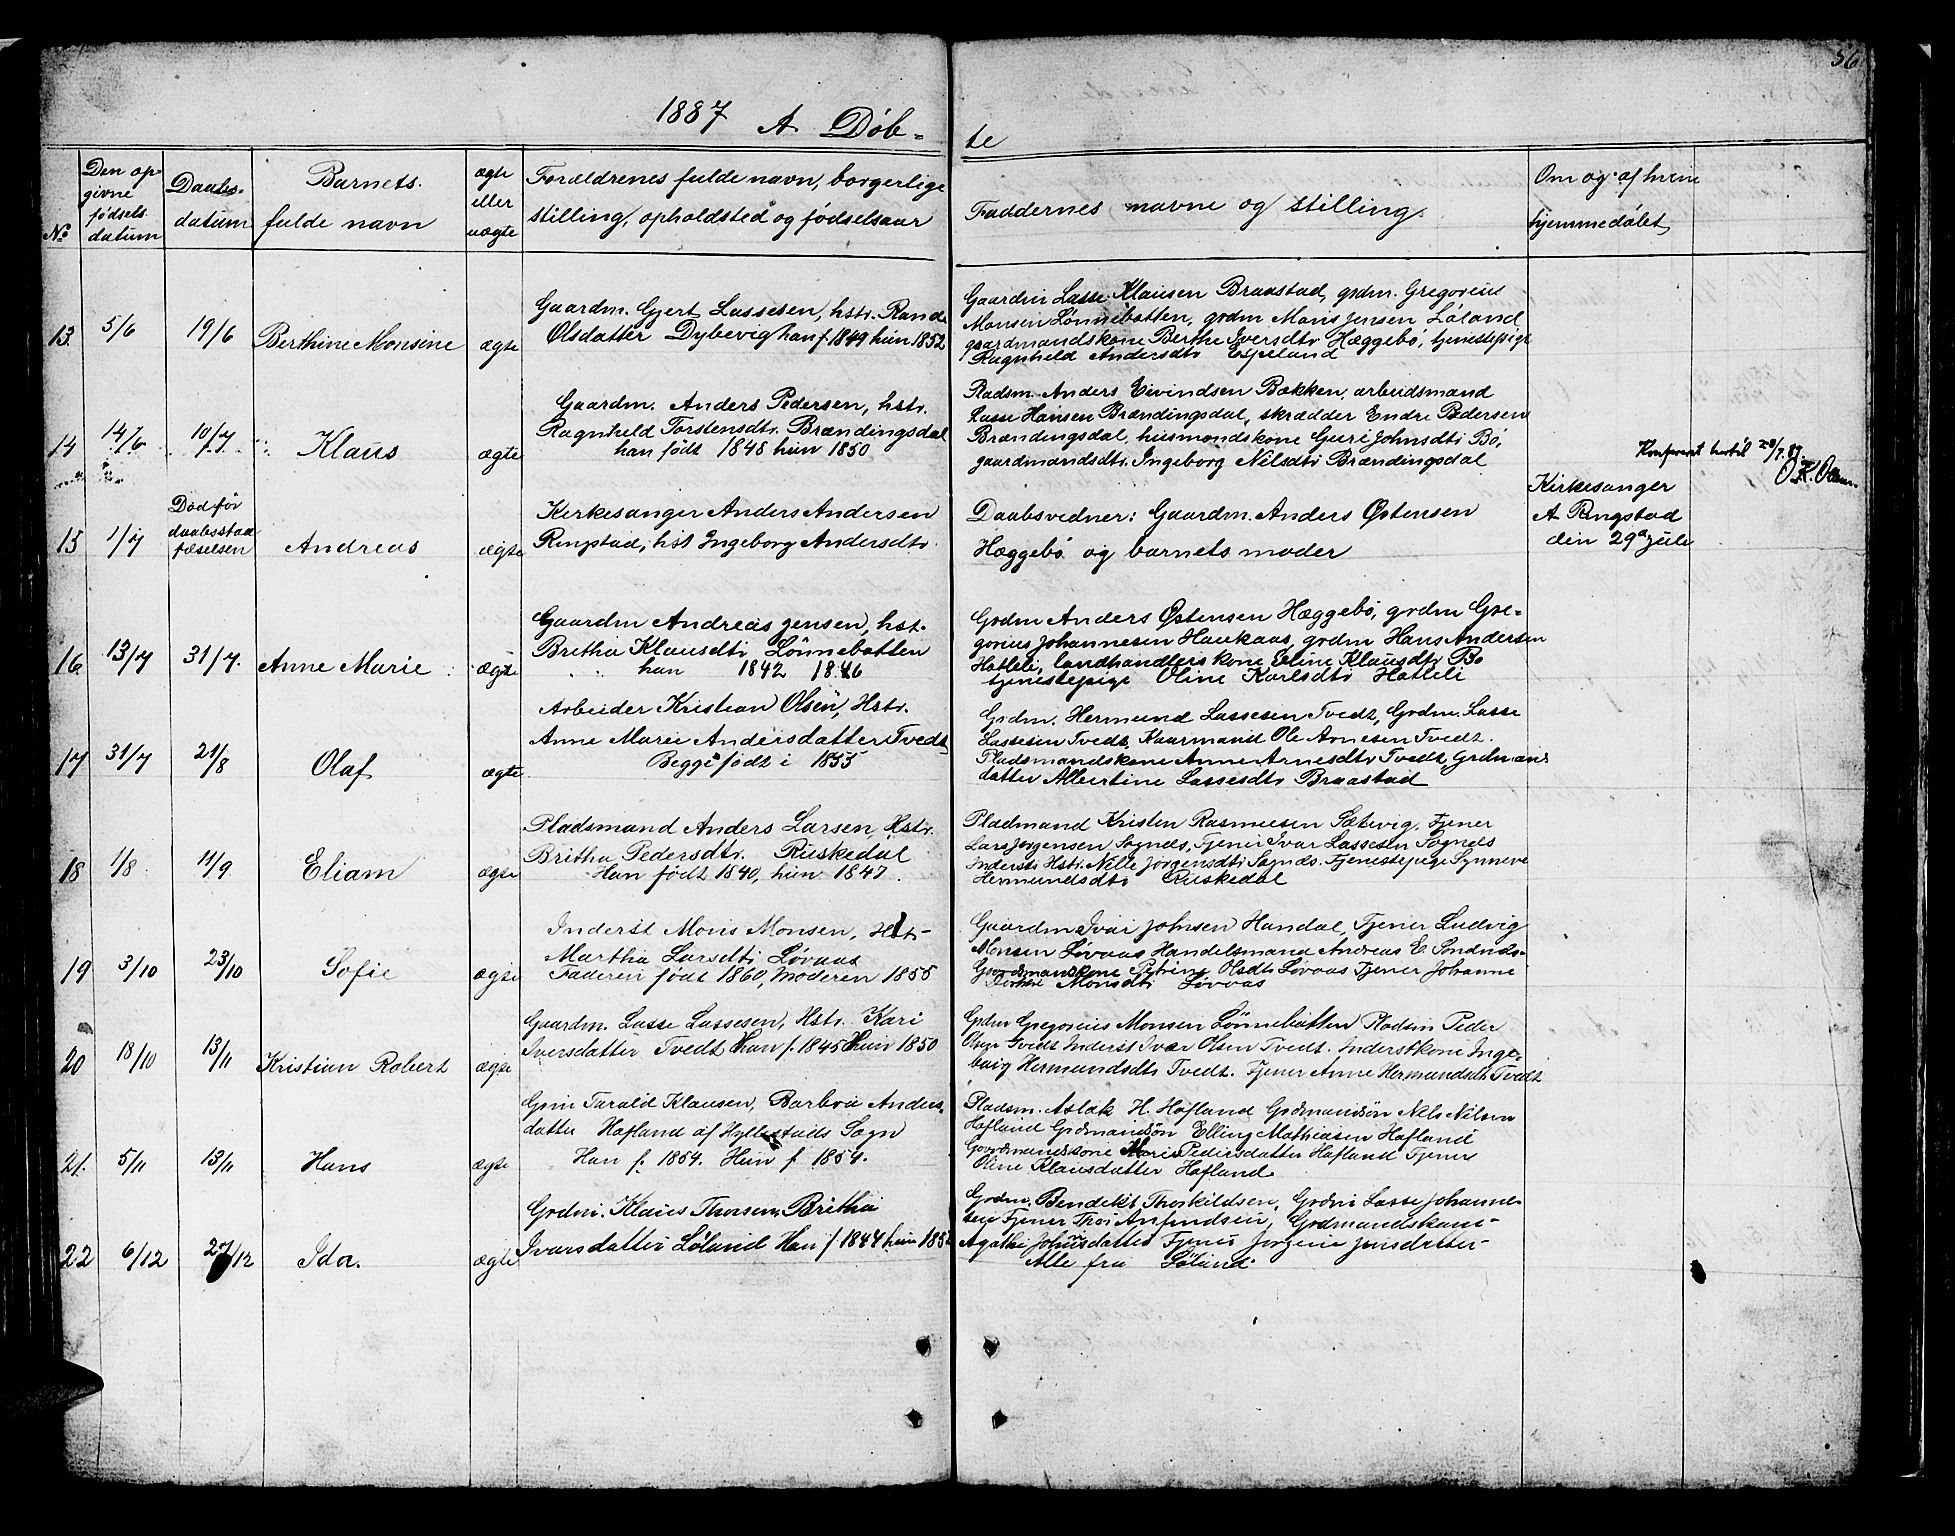 56
1887 A. Døb-
te
No
Den op-
givne
fødsels
datum
Daabs-
datum
Barnets
fulde navn
ægte
eller
uægte
Forældrenes fulde navn, borgerlige
stilling, opholdsted og fødselsaar
Faddernes navne og stilling.
Om og af hvem
hjemmedøbt
13. 5/6 19/6 Berthine Monsine ægte
Gaardm. Gjert Lassesen, hstr. Rande
Olsdatter Dybevig han f. 1849 hun 1852
Gaardm Lasse Klausen Braastad, grdm. Gregorius
Monsen Lønnebotten, grdm Mons Jensen Løland
gaardmandskone Berthe Iversdtr Hæggebø, tjenestepige
Ragnheld Andersdtr Espeland
14 14/6 10/7 Klaus ægte
Gaardm. Anders Pedersen, hstr.
Ragnheld Torstensdtr. Brændingsdal
han født 1848 hun 1850
Pladsm. Anders Eivindsen Bækken, arbeidsmand
Lasse Hansen Brændingsdal, skrædder Endre Pedersen
Brændingsdal, husmandskone Guri Johnsdtr Bø,
gaardmandsdtr. Ingeborg Nilsdtr Brændingsdal
Konfereret hertil 28/7.87.
15 1/7
Død før
daabsstad
fæstelsen
Andreas ægte
Kirkesanger Anders Andersen
Ringstad, hst Ingeborg Andersdtr.
Daabsvidner: Gaardm. Anders Østensen
Hæggebø og barnets moder
Kirkesanger
A Ringstad
den 29de Juli
16 13/7 31/7. Anne Marie ægte
Gaardm Andreas Jensen, hst.
Britha Klausdtr Lønnebotten
han 1842 1846
Grdm Anders Østensen Hæggebø, grdm Gre-
gorius Johannesen Haukaas, grdm Hans Andersen
Hatleli, landhandlers kone Eline Klausdtr Bø
tjenestepige Oline Karlsdtr Hatleli
17 31/7 21/8 Olaf ægte
Arbeider Kristian Olsen, Hstr.
Anne Marie Andersdatter Tvedt
Begge født i 1855
Grdm. Hermund Lassesen Tvedt, Grdm. Lasse
Lassesen Tvedt, Kaarmand Ole Arnesen Tvedt.
Pladsmandskone Anne Arnesdtr Tvedt, Grdman-
datter Albertine Lassesdtr Braastad
18 1/8 11/9 Eliam ægte
Pladsmand Anders Larsen, Hstr.
Britha Pedersdtr. Ruskedal
Han født 1840, hun 1847.
Pladmand Kristen Rasmusen Sætevig, Tjener
Lars Jørgensen Sognds, Tjener Ivar Lassesen Sognds
Inderst Hstr. Nille Jørgensdtr Sognds. Tjenestepige Synneve
Hermundsdtr Ruskedal
19 3/10 23/10 Sofie ægte
Inderst Mons Monsen, Hstr-
Martha Larsdtr Løvaas
Faderen født 1860, Moderen 1855
Gaardm Ivar Johnsen Handal, Tjener Ludvig
Monsen Løvaas Handelsmand Andreas E.
Gaardmanskone Petrine Olsdtr Løvaas Tjener Johanne
Dorthe Monsdtr Løvaas
20 18/10 13/11 Kristian Robert ægte
Gaardm. Lasse Lassesen, Hstr. Kari
Iversdatter Tvedt Han f. 1845 Hun 1850
Grdm Gregorius Monsen Lønnebotten Pladsm Peder
Olsen Tvedt Inderst Ivar Olsen Tvedt. Inderstkone Inge-
borg Hermundsdtr Tvedt. Tjener Anne Hermundsdtr Tvedt
21. 5/11 13/11 Hans ægte
Grm Tarald Klausen, Barbra Anders-
datter Hafland af Hyllestads Sogn
Han f. 1854. Hun f 1854.
Pladsm. Aslak H. Hafland Grdmandsøn Nils Nilsen
Hafland Grdmandsøn Elling Mathiasen Hafland
Gaardmandskone Marie Pedersdatter Hafland Tjener
Oline Klausdatter Hafland
22 6/12 27/12 Ida. ægte
Grdm. Klaus Thorsen, Britha
Ivarsdatter Løland Han f 1844 hun 185
Grdm. Bendikt Thorkildsen, Grdm Lasse Johanne-
sen Tjener Thor Anfindsen, Grdmandskone-
Agathe Johnsdatter Tjener Jorgine Jensdatter-
Alle fra Løland.